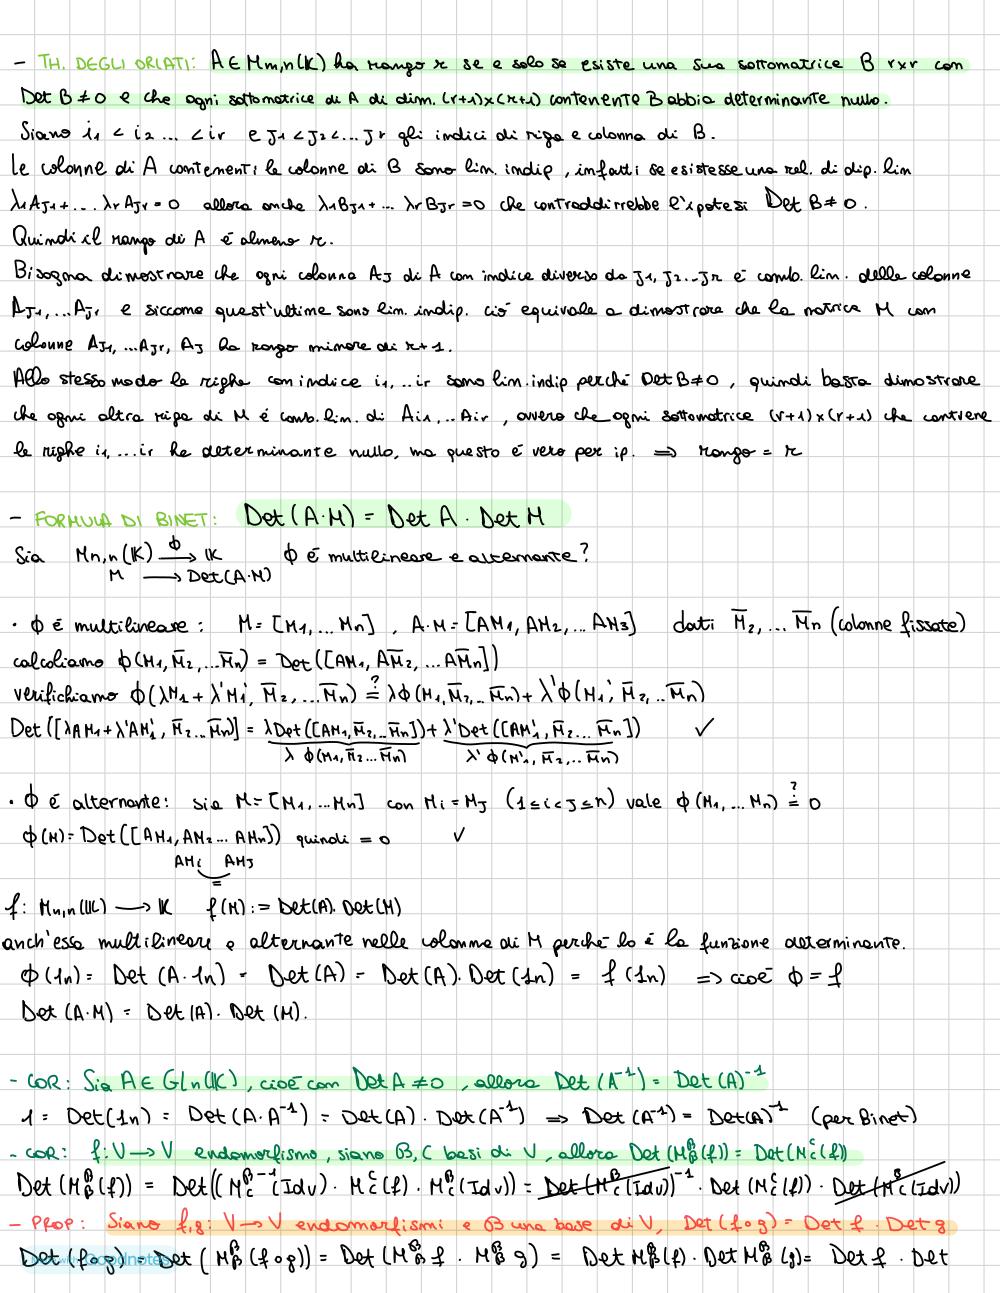 - TH. DEGLI ORLATI: A ∈ Mm,n(K) ha rango r se e solo se esiste una sua sottomatrice B r×r con
Det B ≠ 0 e che ogni sottomatrice di A di dim. (r+1)×(r+1) contenente B abbia determinante nullo.
Siano i1 < i2 ... < ir e J1 < J2 < ... Jr gli indici di riga e colonna di B.
Le colonne di A contenenti le colonne di B sono lin. indip, infatti se esistesse una rel. di dip. lin
λ1AJ1+ ... λrAJr = 0 allora anche λ1BJ1+ ... λrBJr = 0 che contraddirrebbe l'ipotesi Det B ≠ 0.
Quindi il rango di A é almeno r.
Bisogna dimostrare che ogni colonna AJ di A con indice diverso da J1, J2...Jr é comb. lin. delle colonne
AJ1,...AJr e siccome quest'ultime sono lin. indip. ció equivale a dimostrare che la matrice M con
colonne AJ1, ...AJr, AJ ha rango minore di r+1.
Allo stesso modo le righe con indice i1, ..ir sono lin. indip perché Det B ≠ 0, quindi basta dimostrare
che ogni altra riga di M é comb. lin. di Ai1, .. Air, ovvero che ogni sottomatrice (r+1)×(r+1) che contiene
le righe i1, ...ir ha determinante nullo, ma questo é vero per ip. ⇒ rango = r
- FORMULA DI BINET: Det (A·M) = Det A · Det M
Sia Mn,n(K) —ϕ→ K ϕ é multilineare e alternante?
M ⟶ Det(A·M)
· ϕ é multilineare: M = [M1, ... Mn], A·M = [AM1, AM2, ... AM3] dati M̅2, ... M̅n (colonne fissate)
calcoliamo ϕ(M1, M̅2, ...M̅n) = Det([AM1, AM̅2, ...AM̅n])
verifichiamo ϕ(λM1 + λ'M1', M̅2, ... M̅n) ≟ λϕ(M1, M̅2, .. M̅n) + λ'ϕ(M1', M̅2, .. M̅n)
Det([λAM1 + λ'AM1', M̅2 ... M̅n)] = λDet([AM1, M̅2, ... M̅n]) + λ'Det([AM1', M̅2 ... M̅n]) ✓
λ ϕ(M1, M̅2 ... M̅n) λ' ϕ(M1', M̅2, .. M̅n)
· ϕ é alternante: sia M = [M1, ... Mn] con Mi = MJ (1 ≤ i < J ≤ n) vale ϕ(M1, ... Mn) ≟ 0
ϕ(M) = Det([AM1, AM2 ... AMn]) quindi = 0 ✓
AMi AMJ
=
f: Mn,n(K) ⟶ K f(M) := Det(A) · Det(M)
anch'essa multilineare e alternante nelle colonne di M perché lo é la funzione determinante.
ϕ(1n) = Det (A · 1n) = Det(A) = Det(A) · Det(1n) = f(1n) ⇒ cioé ϕ = f
Det (A·M) = Det(A) · Det (M).
- COR: Sia A ∈ Gln(K), cioé con Det A ≠ 0, allora Det (A⁻¹) = Det (A)⁻¹
1 = Det(1n) = Det (A·A⁻¹) = Det(A) · Det(A⁻¹) ⇒ Det (A⁻¹) = Det(A)⁻¹ (per Binet)
- COR: f: V → V endomorfismo, siano B, C basi di V, allora Det (M_B^B(f)) = Det(M_C^C(f))
Det (M_B^B(f)) = Det((M_C^B⁻¹(Idv) · M_C^C(f) · M_C^B(Idv)) = Det(M_C^B(Idv))⁻¹ · Det(M_C^C(f)) · Det(M_C^B(Idv))
- PROP: Siano f,g: V → V endomorfismi e B una base di V, Det (f∘g) = Det f · Det g
Det (f∘g) = Det (M_B^B(f∘g)) = Det (M_B^B f · M_B^B g) = Det M_B^B(f) · Det M_B^B(g) = Det f · Det